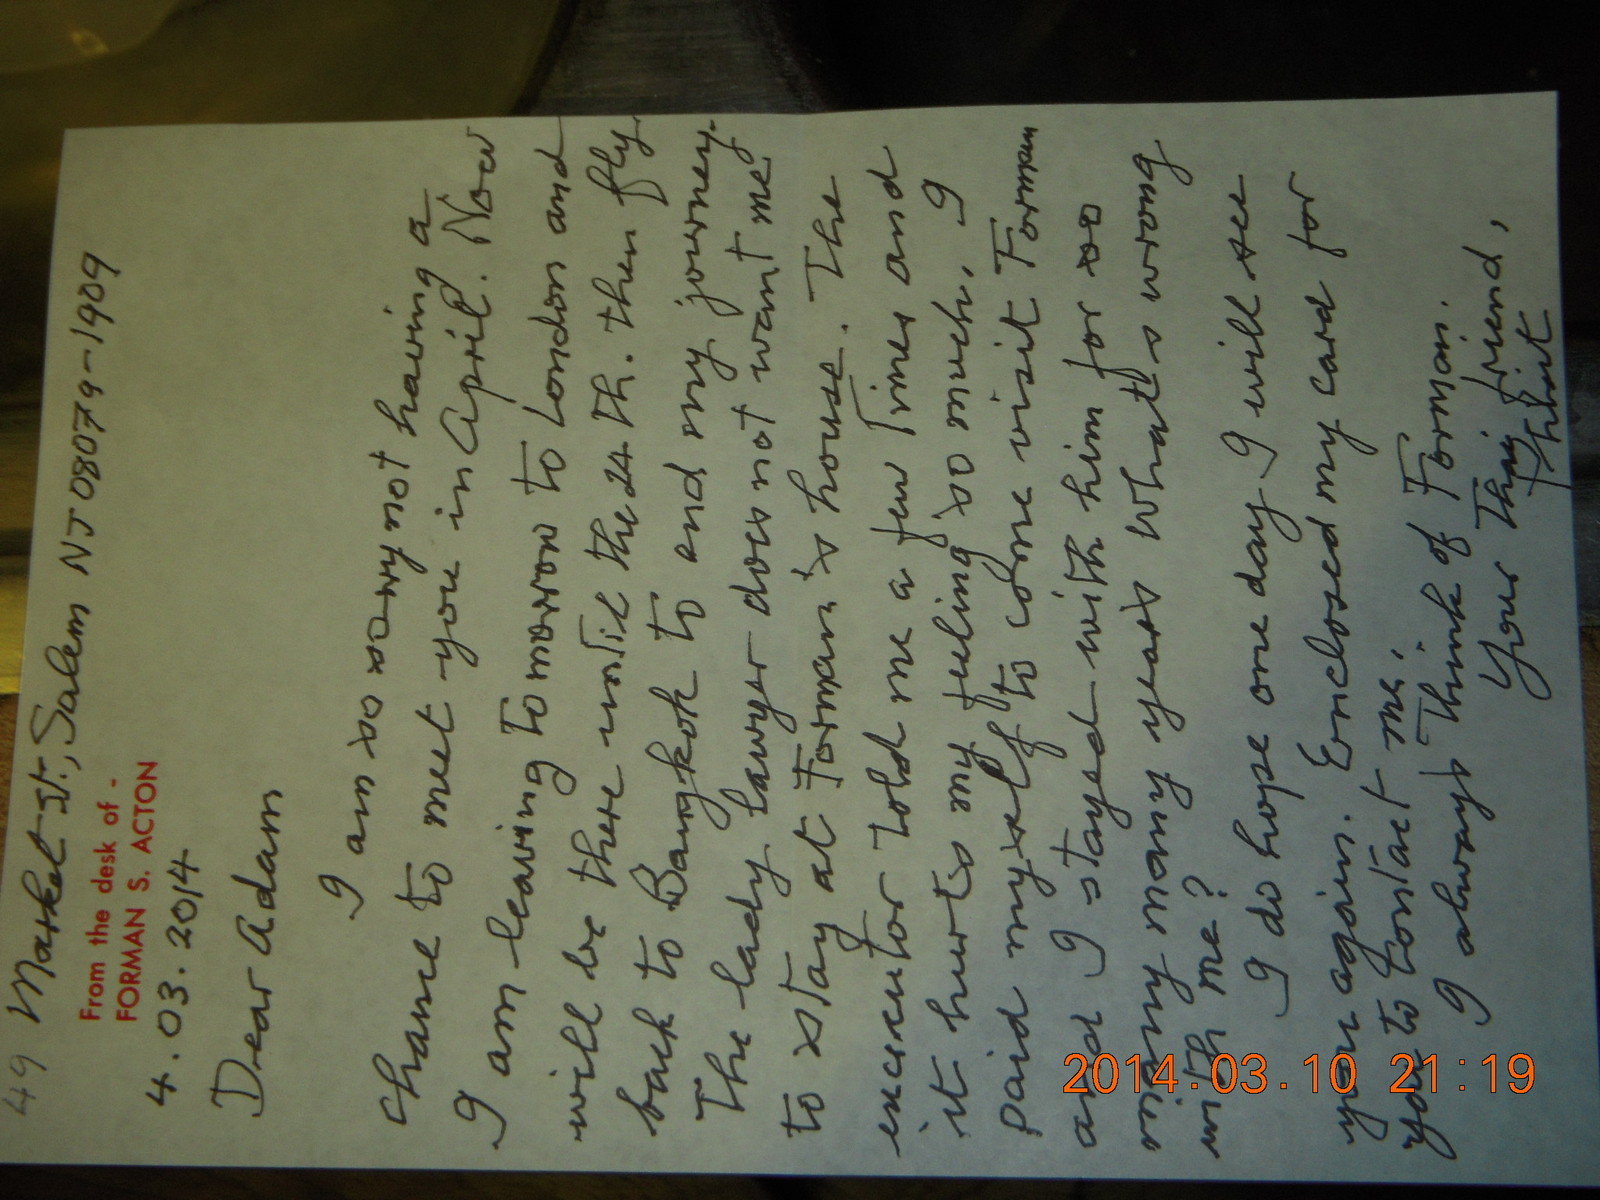 49 Market St., Salem NJ 08079-1909
From the desk of -
FORMAN S. ACTON
4.03.2014
Dear Adam
I am so sorry not having a
chance to meet you in April. Now
I am leaving tomorrow to London and
will be there until the 24 th. then fly
back to Bangkok to end my journey.
The lady lawyer does not want me
to stay at Forman's house. The
executor told me a few times and
it hurts my feeling so much, I
paid myself to come visit Forman
and I stayed with him for so
many many years what's wrong
with me?
I do hope one day I will see
you again. Enclosed my card for
you to contact me.
I always think of Forman.
Your Thai friend,
2014.03.10 21:19